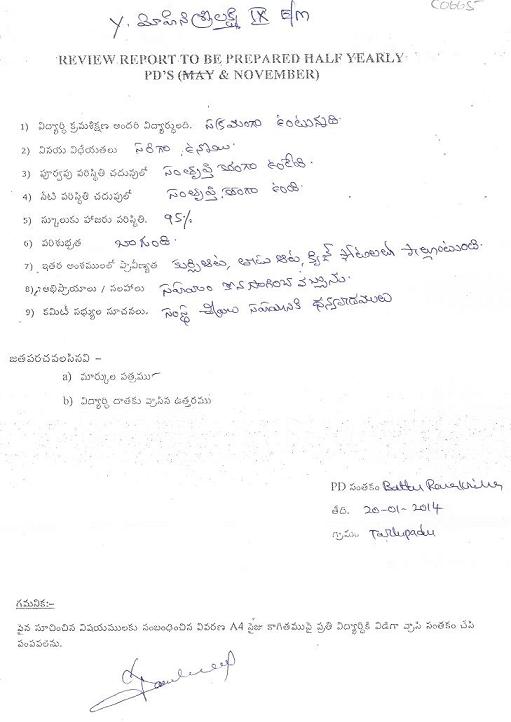 C0665
Y. మోహన శ్రీలక్ష్మి IX E/M
REVIEW REPORT TO BE PREPARED HALF YEARLY
PD'S (MAY & NOVEMBER)
1) విద్యార్థి క్రమశిక్షణ అందరి విద్యార్థులది. సక్రమంగా ఉంటున్నది.
2) వినయ విధేయతలు సరిగా ఉన్నాయి.
3) పూర్వపు పరిస్థితి చదువులో సంతృప్తి కరంగా ఉండేది.
4) నేటి పరిస్థితి చదువులో సంతృప్తి కరంగా ఉంది
5) స్కూలుకు హాజరు పరిస్థితి. 95%
6) పరిశుభ్రత బాగుంది.
7) ఇతర అంశములలో ప్రావీణ్యత కుర్చీఆట, తాడు ఆట, క్విజ్ పోటీలలో పాల్గొంటుంది.
8) అభిప్రాయాలు / సలహాలు సహాయం కొనసాగించ వచ్చును.
9) కమిటీ సభ్యుల సూచనలు. సంస్థ చేయు సహాయానికి ధన్యవాదములు
జతపరచవలసినవి –
a) మార్కుల పత్రము
b) విద్యార్థి దాతకు వ్రాసిన ఉత్తరము
PD సంతకం Battu Ramakrishna
తేది. 20-01-2014
గ్రామం Tarlupadu
గమనిక:–
పైన సూచించిన విషయములకు సంబంధించిన వివరణ A4 సైజు కాగితముపై ప్రతి విద్యార్థికి విడిగా వ్రాసి సంతకం చేసి
పంపవలెను.